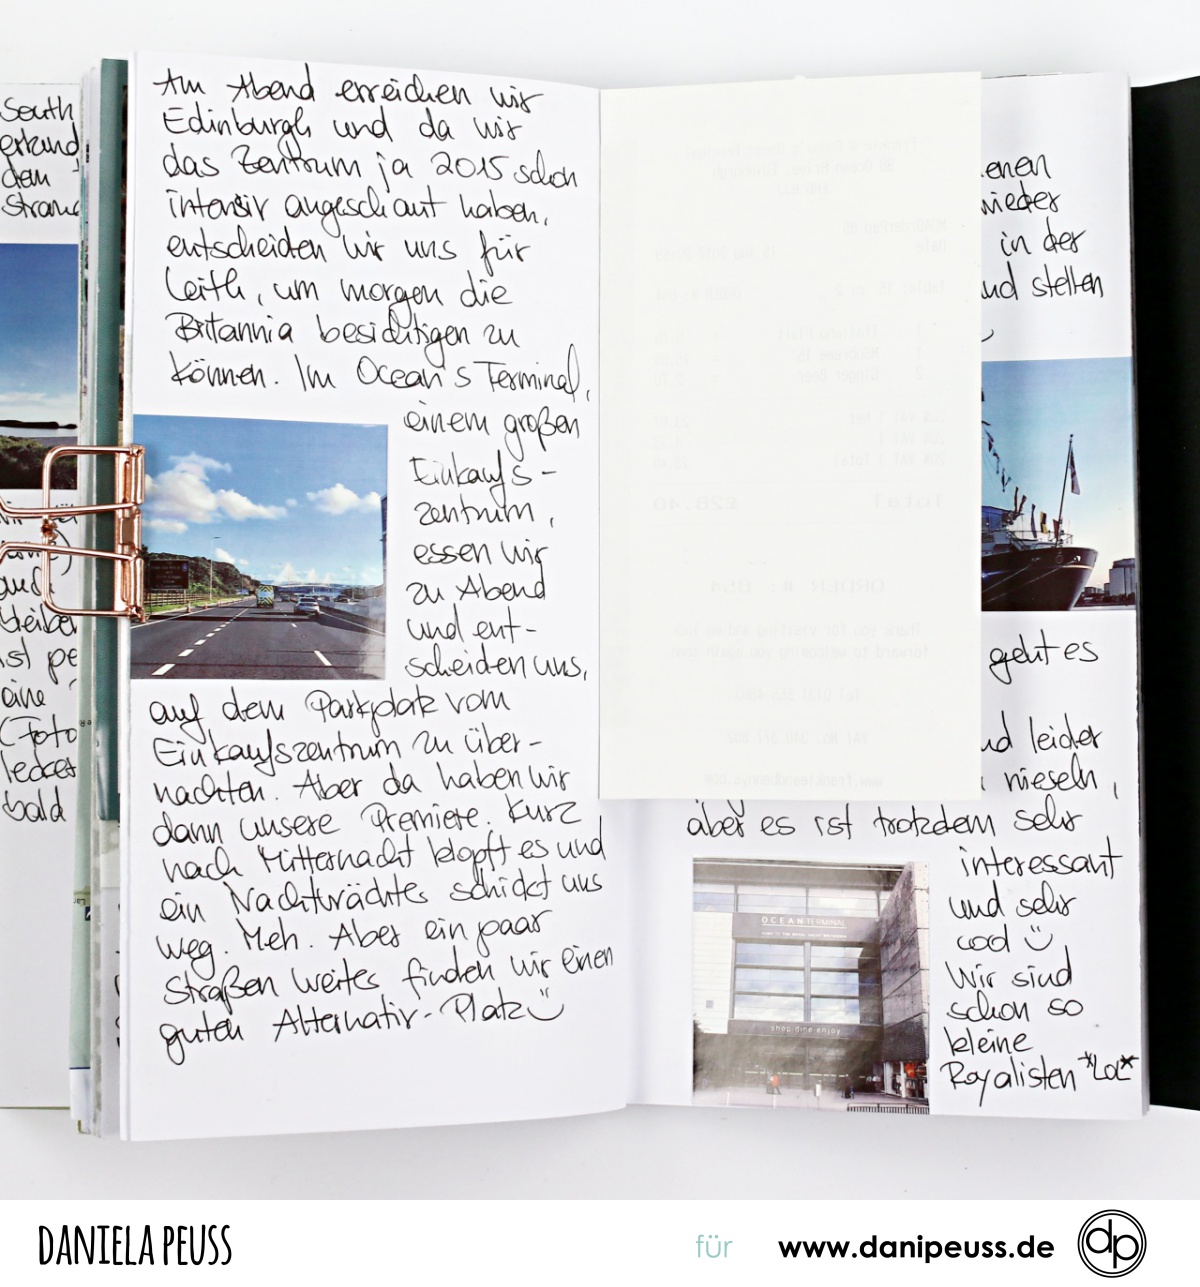 South
erkund
dem
Strand
Am Abend erreichen wir
Edinburgh und da wir
das Zentrum ja 2015 schon
intensiv angeschaut haben,
entscheiden wir uns für
Leith, um morgen die
Britannia besichtigen zu
können. Im Ocean's Terminal,
einem großen
Einkaufs-
zentrum,
essen wir
zu Abend
und ent-
scheiden uns,
auf dem Parkplatz vom
Einkaufszentrum zu über-
nachten. Aber da haben wir
dann unsere Premiere. Kurz
nach Mitternacht klopft es und
ein Nachtwächter schickt uns
weg. Meh. Aber ein paar
Straßen weiter finden wir einen
guten Alternativ-Platz
auch
bleiben
ist pe
eine
(Foto
lecker
bald
enen
wieder
in der
und stellen
Total £28.40
ORDER #: 
Thank you for visiting and we look
forward to welcoming you again soon
geht es
und leider
nieseln,
aber es ist trotzdem sehr
interessant
und sehr
cool
Wir sind
schon so
kleine
Royalisten *LoL*
OCEAN TERMINAL
shop dine enjoy
DANIELA PEUSS
für www.danipeuss.de
dp